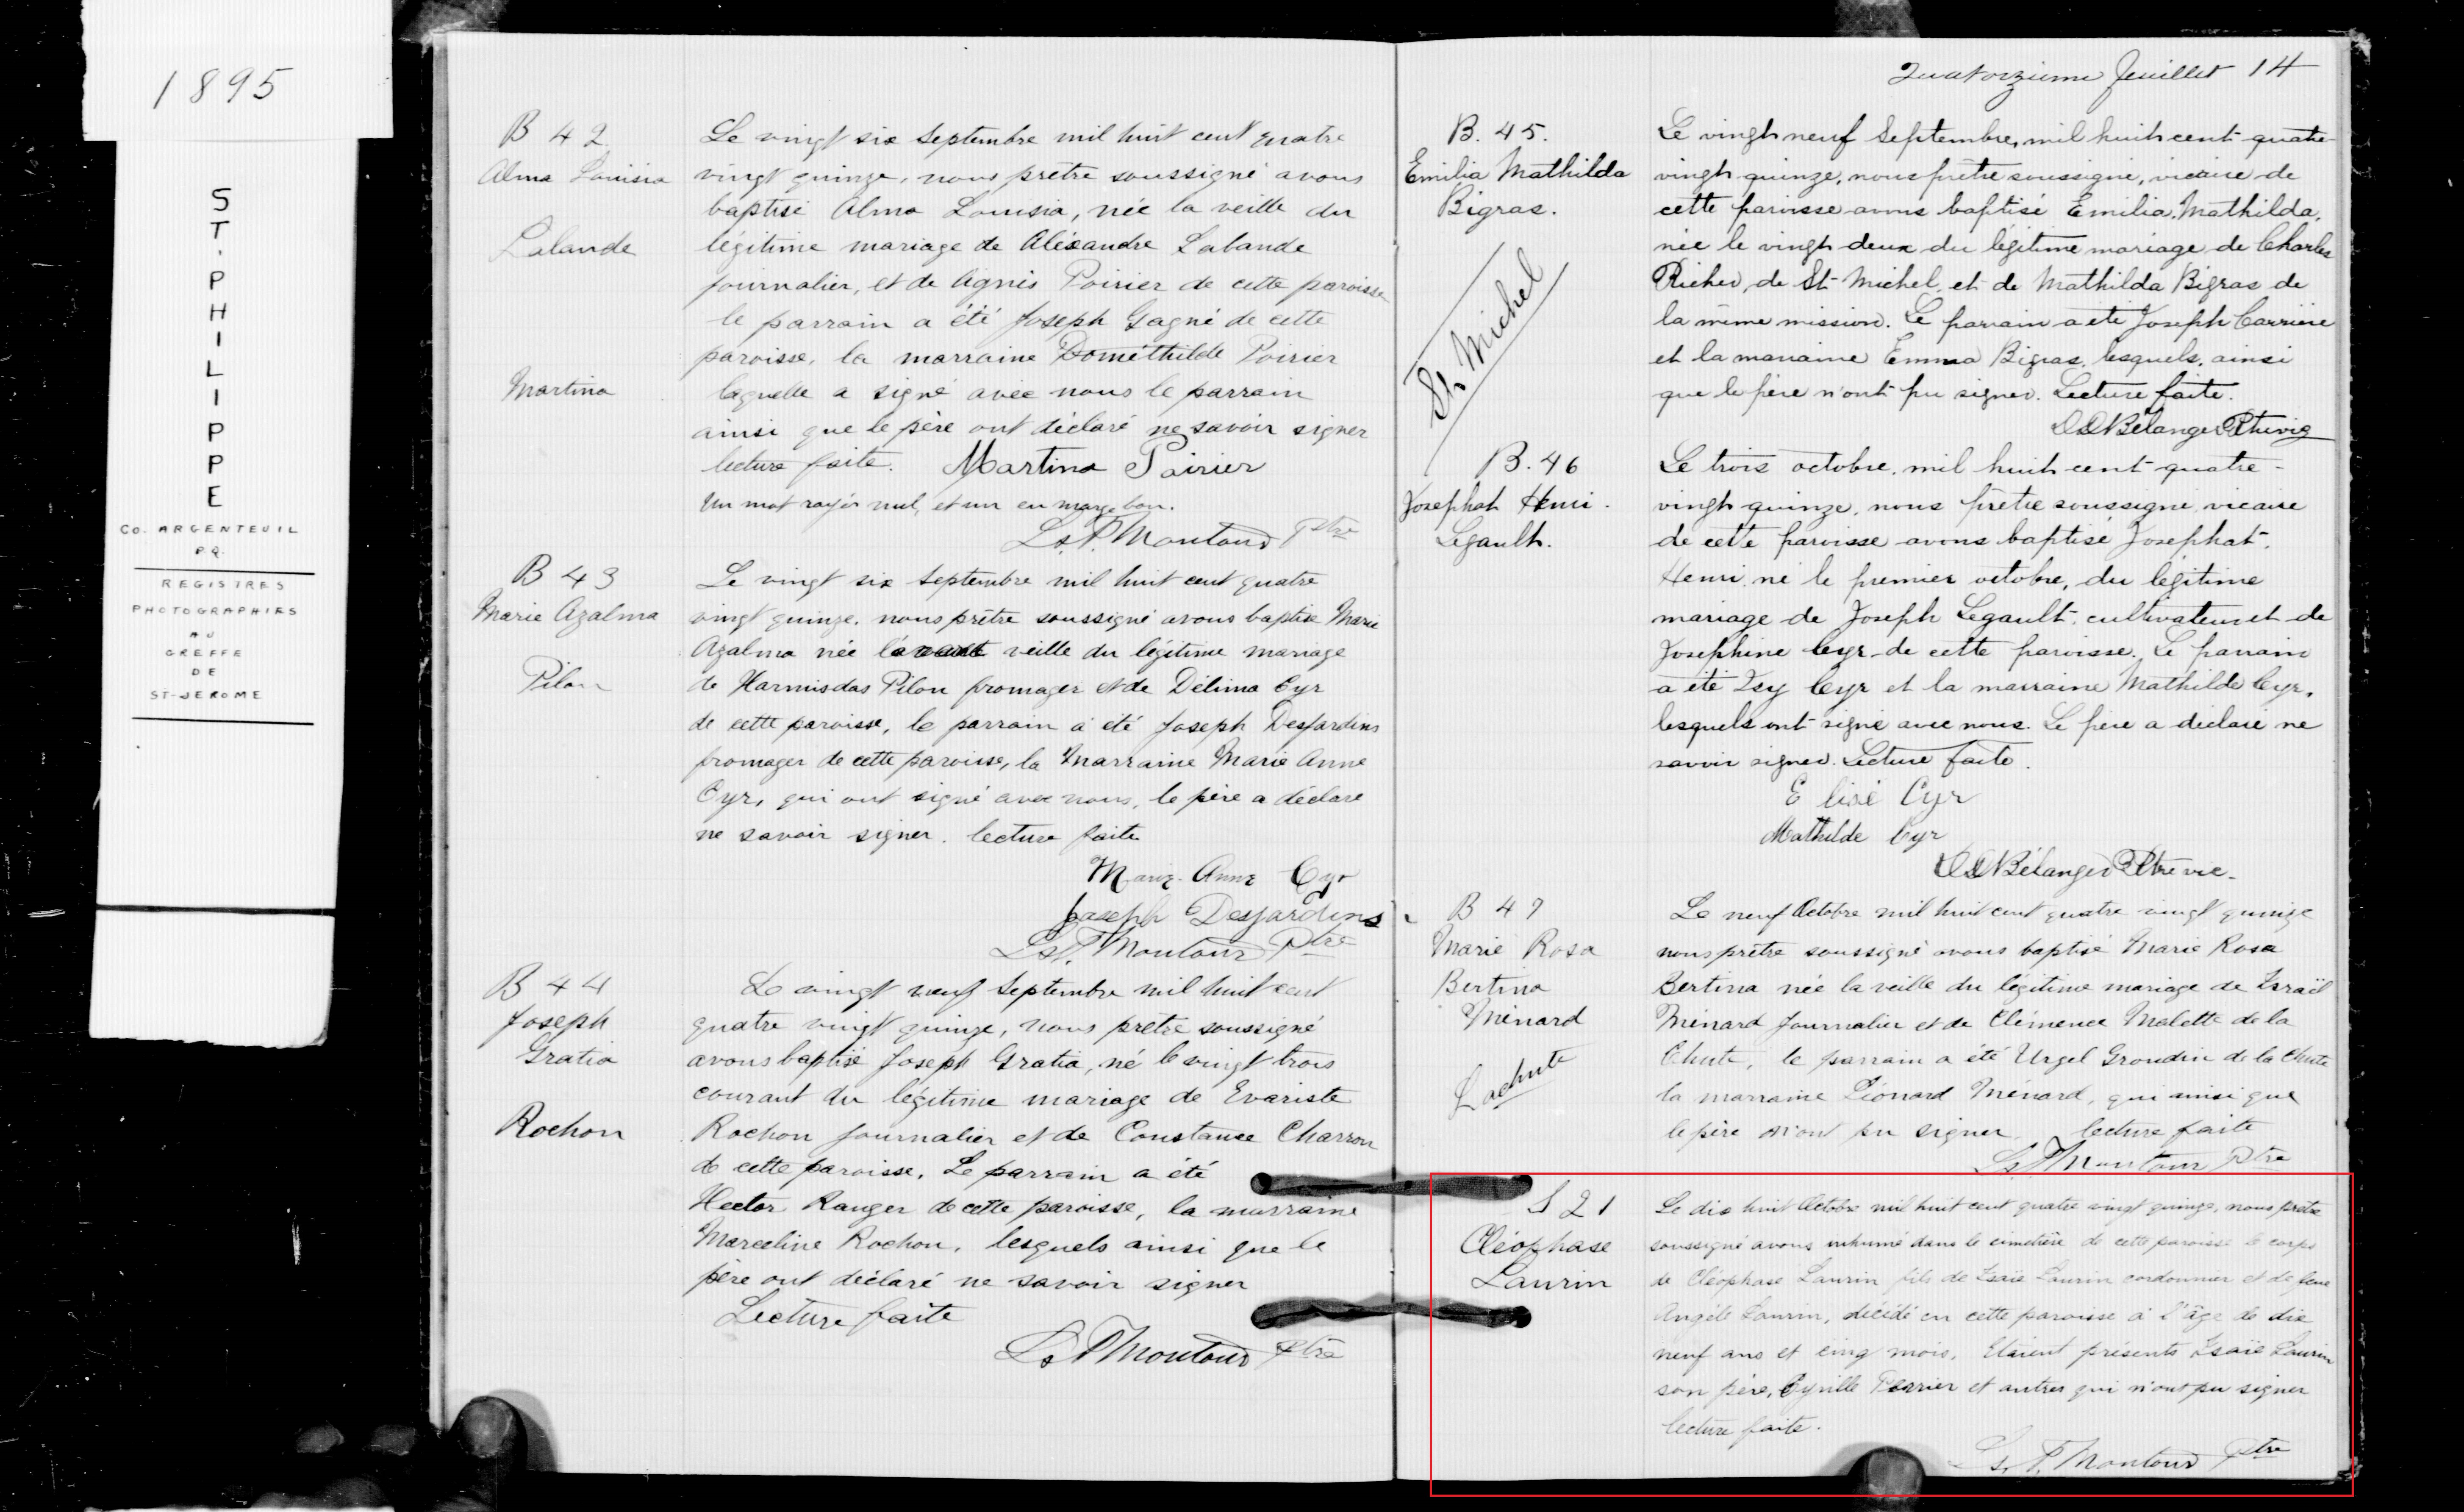 1895
ST. PHILIPPE
Co. ARGENTEUIL
P.Q.
REGISTRES
PHOTOGRAPHIES
AU
GREFFE
DE
ST-JEROME
B 42
Alma Louisia
Lalande
Martina
Le vingt six Septembre mil huit cent quatre
vingt quinze, nous prêtre soussigné avons
baptisé Alma Louisia, née la veille du
légitime mariage de Aléxandre Lalande
journalier, et de Agnès Poirier de cette paroisse
le parrain a été Joseph Gagné de cette
paroisse, la marraine Dométhilde Poirier
laquelle a signé avec nous le parrain
ainsi que le père ont déclaré ne savoir signer
lecture faite. Martina Poirier
Un mot rayé nul, et un en marge bon.
Ls. P. Montour Ptre
B 43
Marie Azalma
Pilon
Le vingt six Septembre mil huit cent quatre
vingt quinze, nous prêtre soussigné avons baptisé Marie
Azalma née l'avant veille du légitime mariage
de Harmisdas Pilon fromager et de Délima Cyr
de cette paroisse, le parrain a été Joseph Desjardins
fromager de cette paroisse, la Marraine Marie Anne
Cyr, qui ont signé avec nous, le père a déclaré
ne savoir signer. lecture faite
Marie-Anne Cyr
Joseph Desjardins
Ls. P. Montour Ptre
B 44
Joseph
Gratia
Rochon
Le vingt neuf Septembre mil huit cent
quatre vingt quinze, nous prêtre soussigné
avons baptisé Joseph Gratia, né le vingt trois
courant du légitime mariage de Evariste
Rochon journalier et de Constance Charron
de cette paroisse. Le parrain a été
Hector Ranger de cette paroisse, la marraine
Marceline Rochon, lesquels ainsi que le
père ont déclaré ne savoir signer
Lecture faite
Ls P Montour Ptre
Quatorzième feuillet 14
B. 45.
Emilia Mathilda
Bigras.
St Michel
Le vingt neuf Septembre, mil huit cent quatre-
vingt quinze, nous prêtre soussigné, vicaire de
cette paroisse avons baptisé Emilia, Mathilda,
née le vingt deux du légitime mariage de Charles
Richer, de St Michel, et de Mathilda Bigras de
la même mission. Le parrain a été Joseph Carrière
et la marraine Emma Bigras, lesquels, ainsi
que le père n'ont pu signer. Lecture faite.
Bélanger Ptre vic
B. 46
Josephat Henri.
Legault.
Le trois octobre, mil huit cent quatre-
vingt quinze, nous prêtre soussigné, vicaire
de cette paroisse avons baptisé Josephat.
Henri, né le premier octobre, du légitime
mariage de Joseph Legault, cultivateur et de
Josephine Cyr de cette paroisse. Le parrain
a été Isy Cyr et la marraine Mathilde Cyr,
lesquels ont signé avec nous. Le père a déclaré ne
savoir signer. Lecture faite.
Elisé Cyr
Mathilde Cyr
Bélanger Ptre vic.
B 47
Marie Rosa
Bertina
Ménard
Lachute
Le neuf Octobre mil huit cent quatre vingt quinze
nous prêtre soussigné avons baptisé Marie Rosa
Bertina née la veille du légitime mariage de Israël
Ménard Journalier et de Clémence Malette de la
Chute, le parrain a été Urgel Grondin de la Chute
la marraine Léonard Ménard, qui ainsi que
le père n'ont pu signer. lecture faite
Ls. P. Montour Ptre
S 21
Cléophase
Laurin
Le dix huit Octobre mil huit cent quatre vingt quinze, nous prêtre
soussigné avons inhumé dans le cimetière de cette paroisse le corps
de Cléophase Laurin fils de Isaïe Laurin cordonnier et de feue
Angèle Laurin, décédé en cette paroisse à l'âge de dix
neuf ans et cinq mois. Etaient présents Isaïe Laurin
son père, Cyrille Perrier et autres qui n'ont pu signer
lecture faite.
Ls. P. Montour Ptre